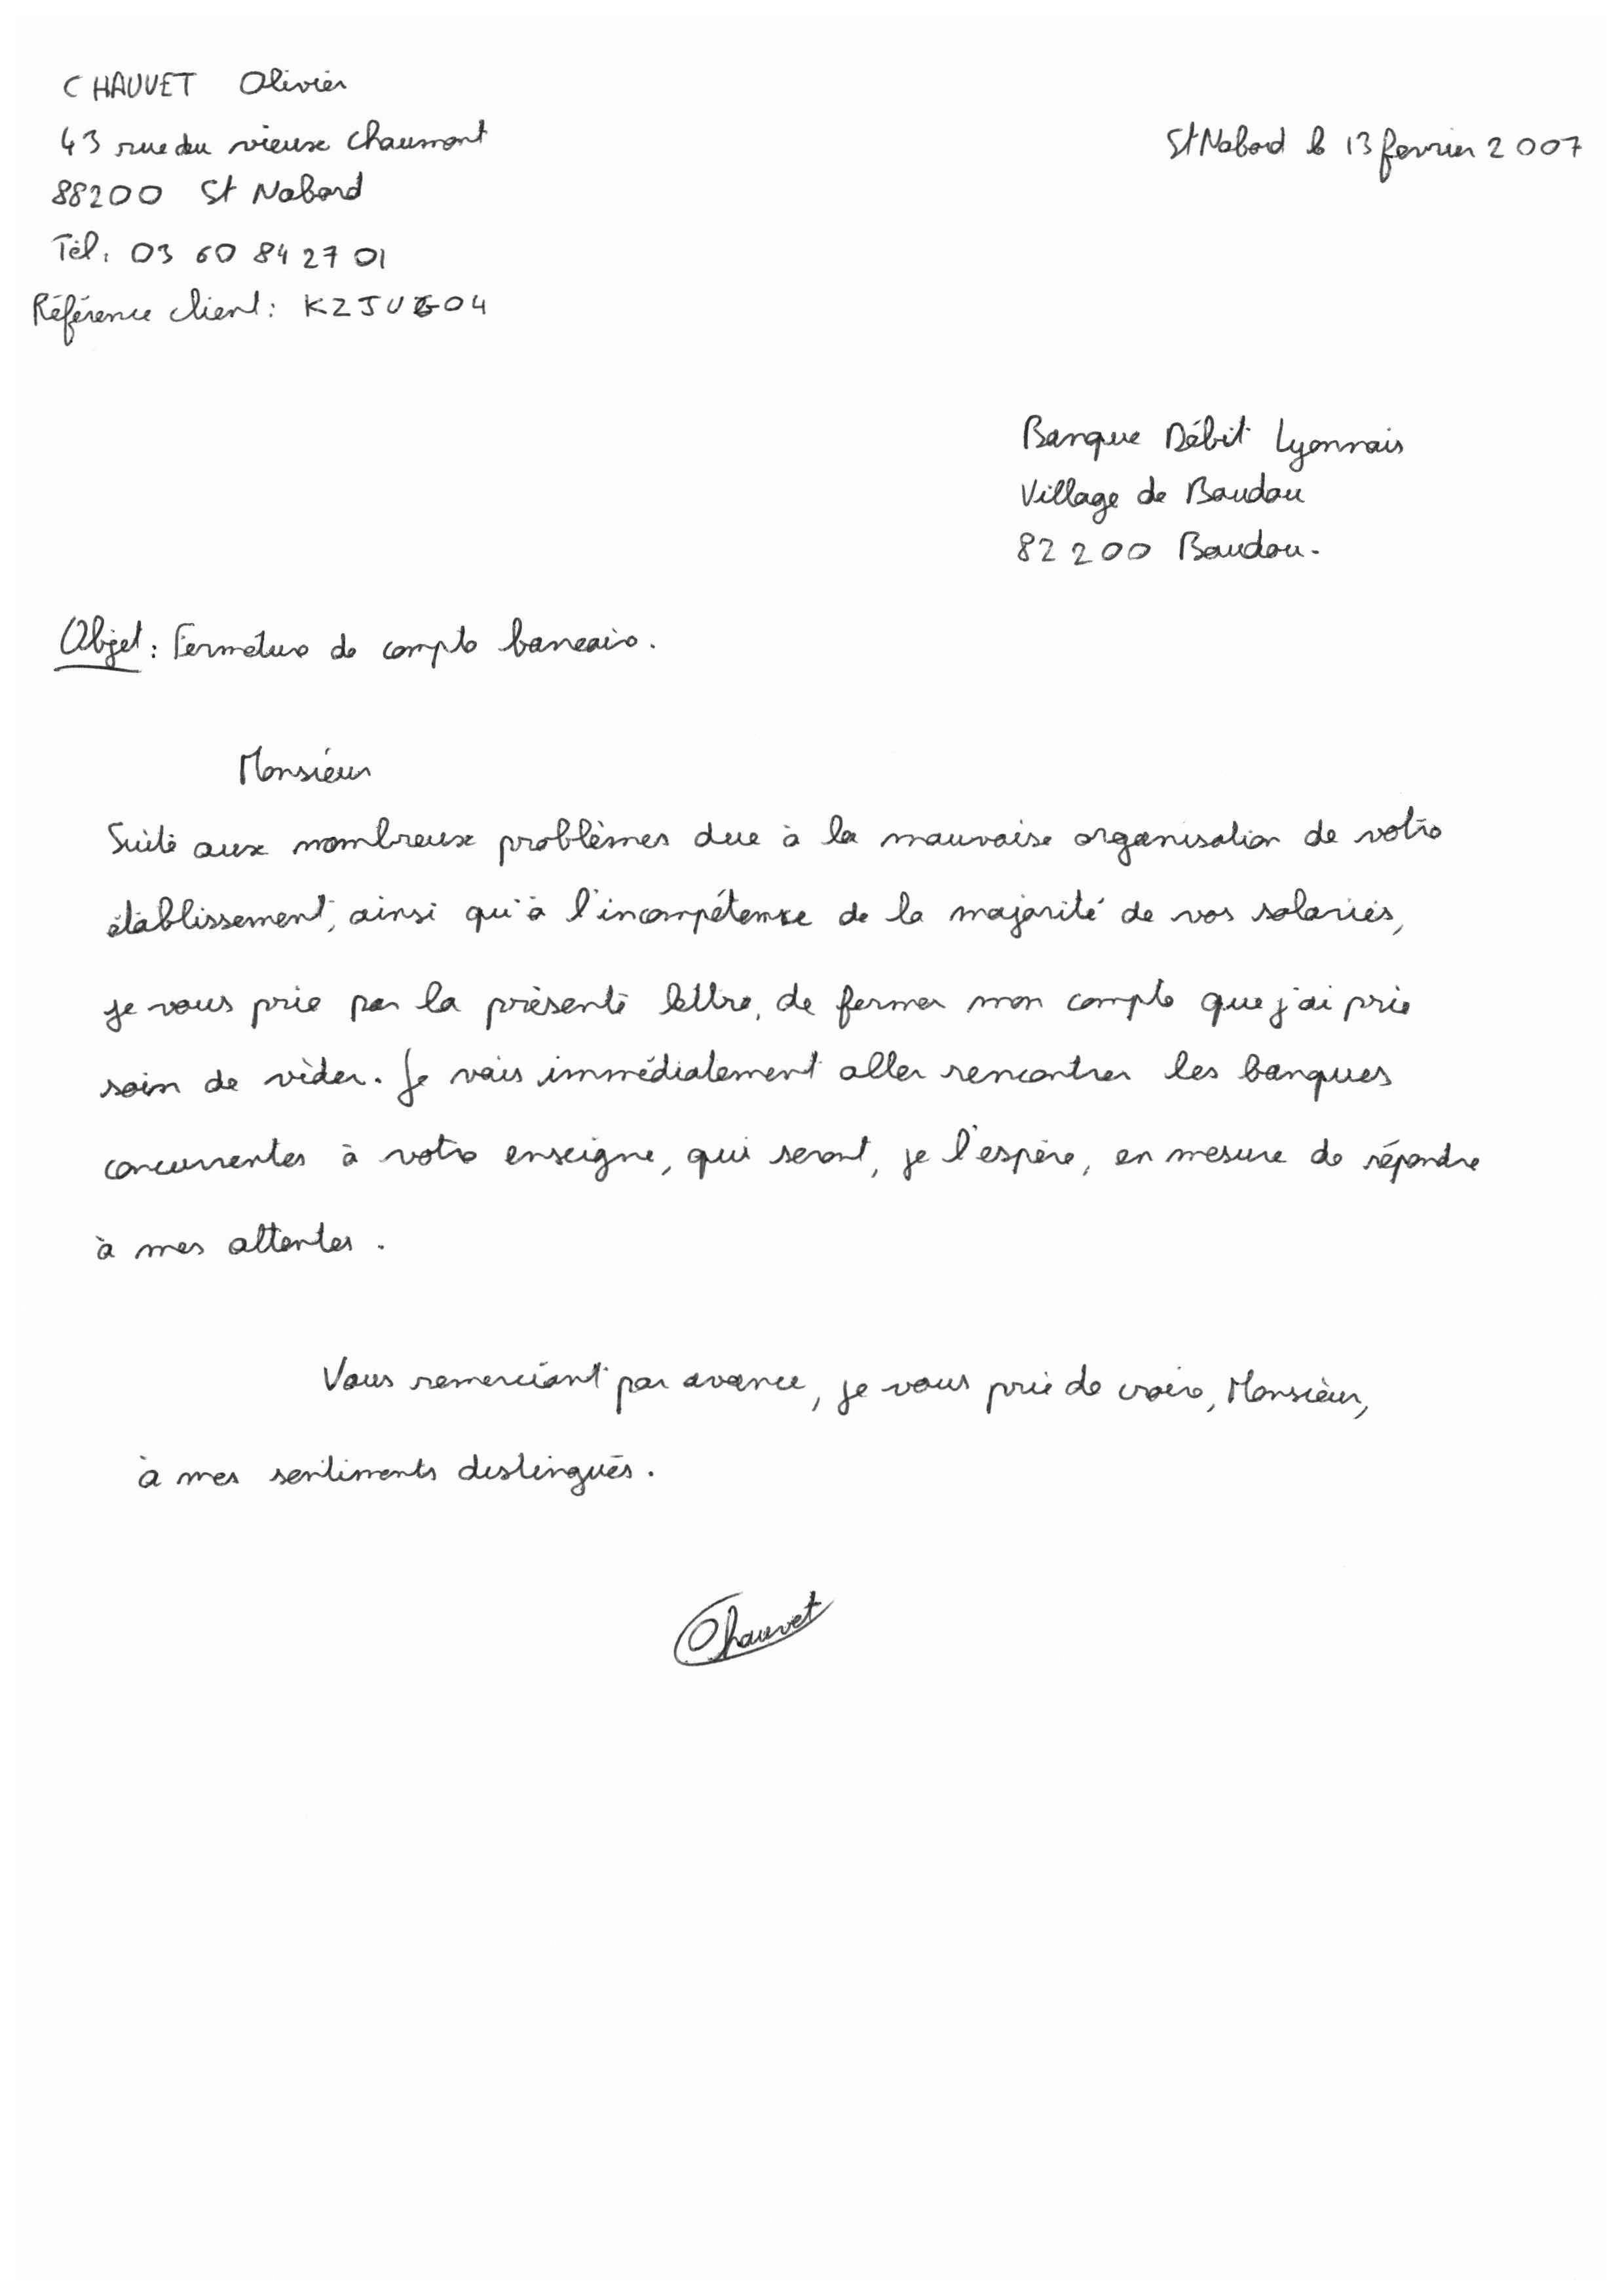 CHAUVET Olivier
43 rue du vieux Chaumont
St Nabord le 13 fevrier 2007
88200 St Nabord
Tél: 03 60 84 27 01
Référence client: KZJUG04
Banque Débit Lyonnais
Village de Boudou
82200 Boudou.
Objet: Fermeture de compte bancaire.
Monsieur
Suite aux nombreux problèmes due à la mauvaise organisation de votre
établissement, ainsi qu'à l'incompétence de la majorité de vos salariés,
je vous prie par la présente lettre, de fermer mon compte que j'ai prie
soin de vider. Je vais immédiatement aller rencontrer les banques
concurrentes à votre enseigne, qui seront, je l'espère, en mesure de répondre
à mes attentes.
Vous remerciant par avance, je vous prie de croire, Monsieur,
à mes sentiments distingués.
Chauvet